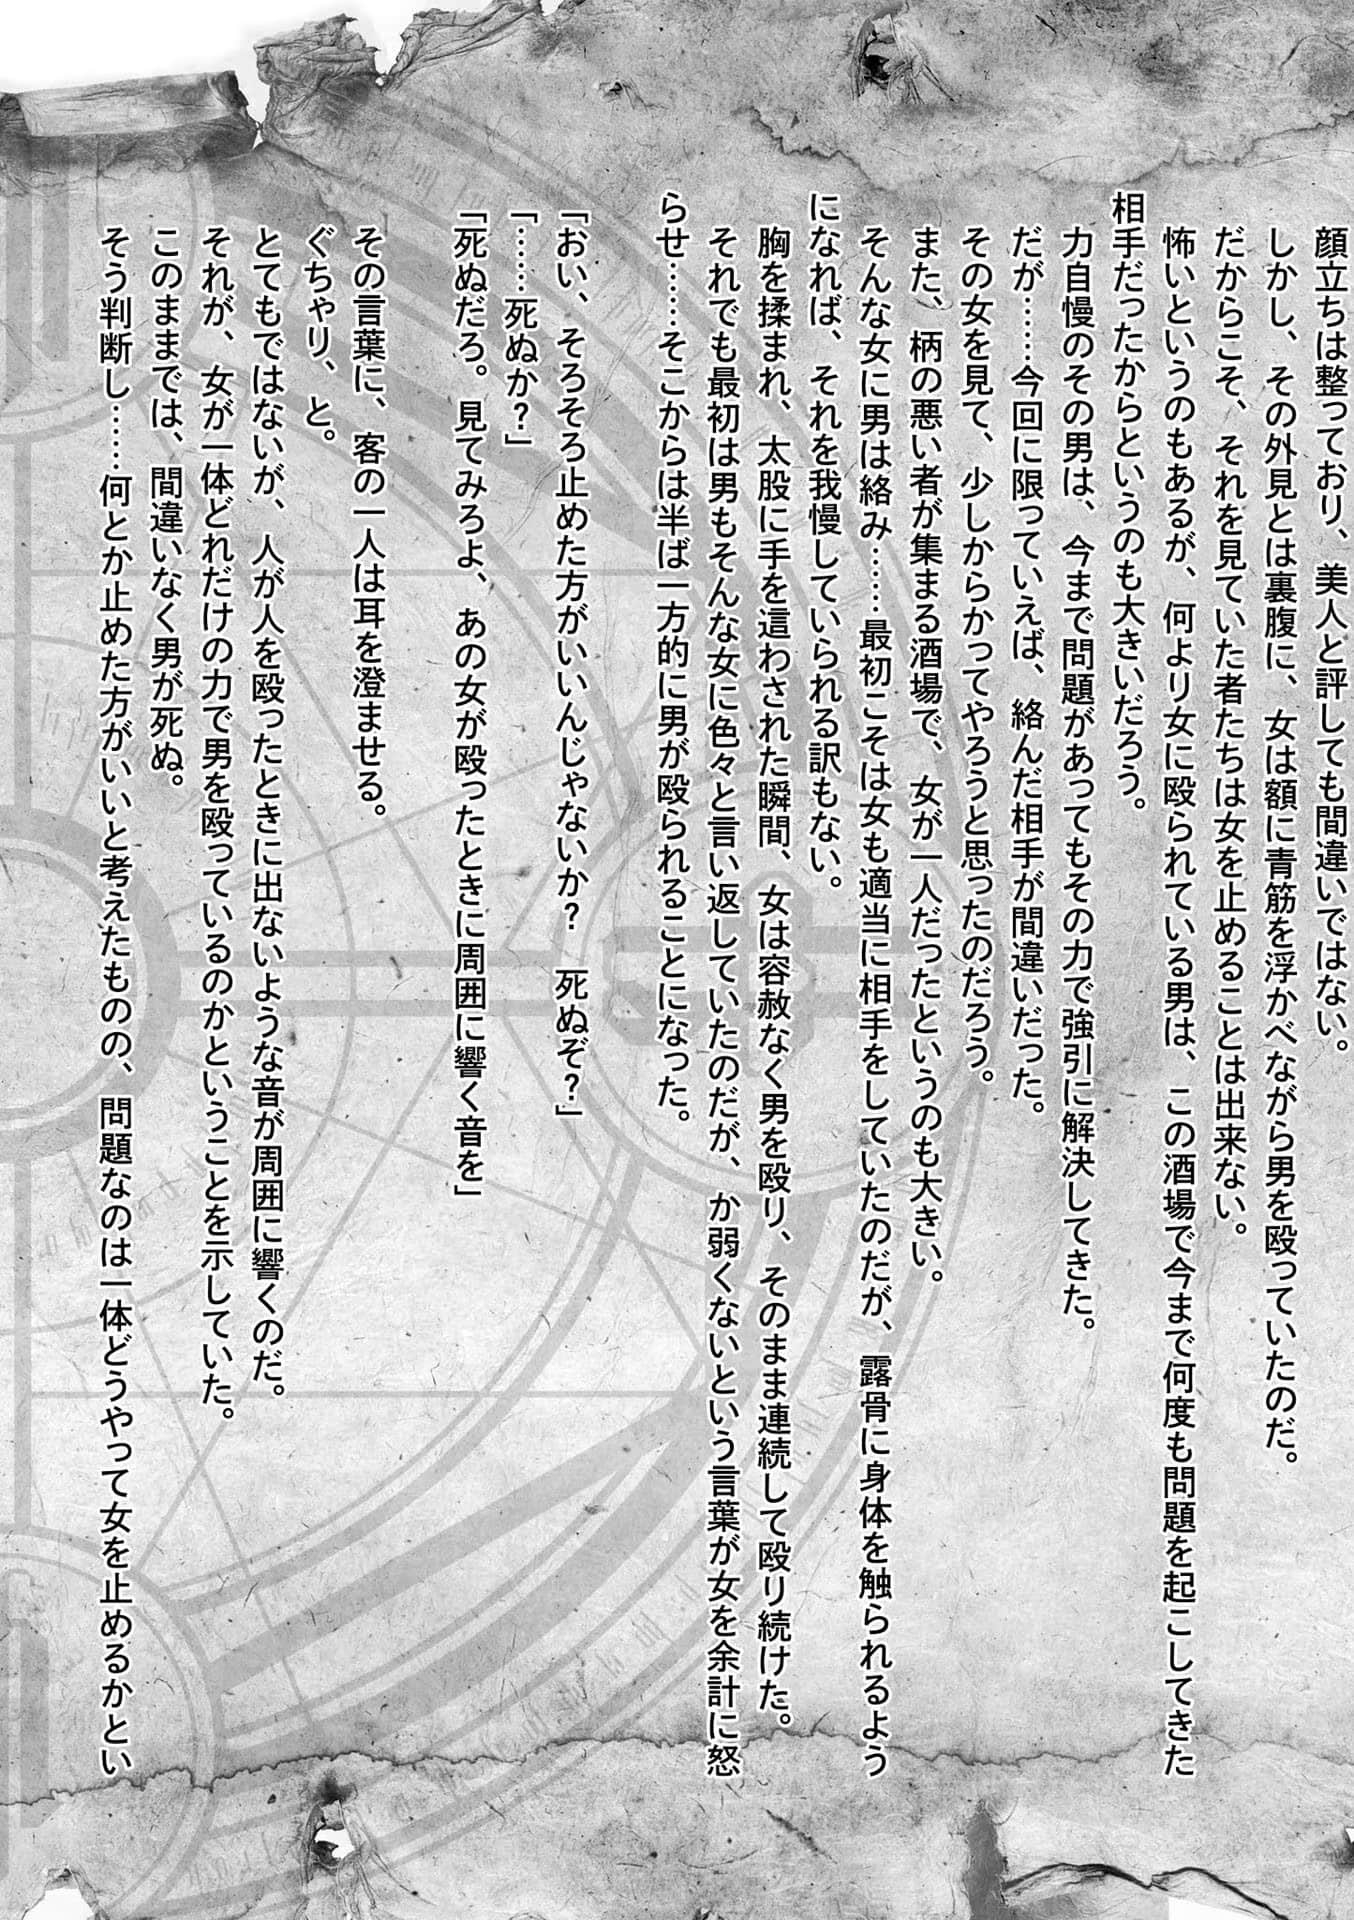 顔立ちは整っており、美人と評しても間違いではない。
しかし、その外見とは裏腹に、女は額に青筋を浮かべながら男を殴っていたのだ。
だからこそ、それを見ていた者たちは女を止めることは出来ない。
怖いというのもあるが、何より女に殴られている男は、この酒場で今まで何度も問題を起こしてきた
相手だったからというのも大きいだろう。
力自慢のその男は、今まで問題があってもその力で強引に解決してきた。
だが……今回に限っていえば、絡んだ相手が間違いだった。
その女を見て、少しからかってやろうと思ったのだろう。
また、柄の悪い者が集まる酒場で、女が一人だったというのも大きい。
そんな女に男は絡み……最初こそは女も適当に相手をしていたのだが、露骨に身体を触られるよう
になれば、それを我慢していられる訳もない。
胸を揉まれ、太股に手を這わされた瞬間、女は容赦なく男を殴り、そのまま連続して殴り続けた。
それでも最初は男もそんな女に色々と言い返していたのだが、か弱くないという言葉が女を余計に怒
らせ……そこからは半ば一方的に男が殴られることになった。
「おい、そろそろ止めた方がいいんじゃないか？　死ぬぞ？」
「……死ぬか？」
「死ぬだろ。見てみろよ、あの女が殴ったときに周囲に響く音を」
その言葉に、客の一人は耳を澄ませる。
ぐちゃり、と。
とてもではないが、人が人を殴ったときに出ないような音が周囲に響くのだ。
それが、女が一体どれだけの力で男を殴っているのかということを示していた。
このままでは、間違いなく男が死ぬ。
そう判断し……何とか止めた方がいいと考えたものの、問題なのは一体どうやって女を止めるかとい